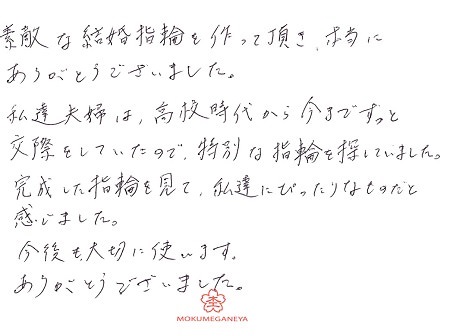 素敵な結婚指輪を作って頂き、本当に
ありがとうございました。
私達夫婦は、高校時代から今までずっと
交際をしていたので、特別な指輪を探していました。
完成した指輪を見て、私達にぴったりなものだと
感じました。
今後も大切に使います。
ありがとうございました。
MOKUMEGANEYA